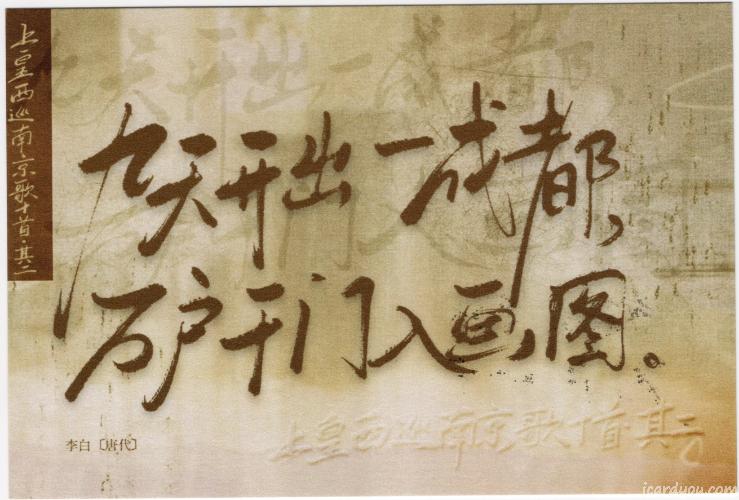 上皇西巡南京歌十首·其二
九天开出一成都，
万户千门入画图。
李白〔唐代〕
上皇西巡南京歌十首·其二
icardyou.com